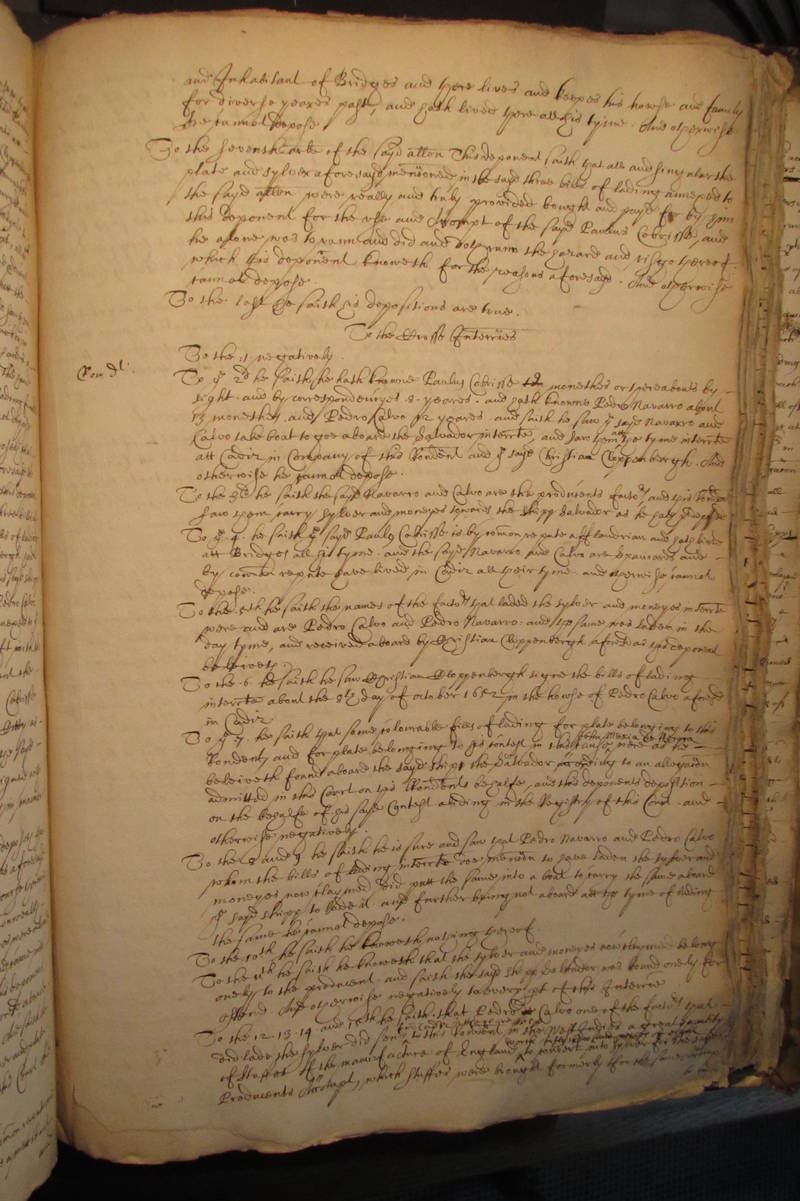 and Inhabitant of Bridges and there lives and keepes his howse and family
for diverse yeares past, and hath lived there all his tyme. And otherwise
he cannot depose.
To the seventh arle of the sayd allon This deponent saith that all and singular the
plate and sylver aforesayd mencioned in the sayd three bills of lading annexed to
the sayd allon were really and truly provided bought and payd for by him
this deponent for the use and Accompt of the sayd Paulus Cobrisse, and
he alone was to runn and did and doth runn the hazard and risgo thereof
which this deponent knoweth for the reasons aforesayd. And otherwise
cannot depose
To the last he saith his depositions are true.
To the Crosse Interries
To the 1 negatively.
To ye 2d he saith he hath knowne Paulus Cobrisse monethes or thereabouts by
sight. and by correspondencyes 8 yeares. and hath knowne Pedro Navarro about
monethes and Pedro Calvo 12 yeares. and saith he saw ye sayd Navarro and
Calvo take boat to goe aboard the Salvador interrte, and saw them att ye tyme interrte
att Cadiz in Company of this Rendent and ye sayd Christian Cloppenbergh. And
otherwise he cannot depose.
To the 3d. he saith the sayd Navarro and Calvo are the producents ffactors and this Rendent
saw them carry sylver and moneyes towards the shipp Salvador as he hath deposed
To ye 4. he saith ye sayd Paulus Cobrisse is by comon repute a fflandrian and hath lived
att Bridges all his tyme. and the sayd Navarro and Calvo are Spaniards and
by comon repute have lived in Cadiz all their tyme. and otherwise cannot
depose.
To the 5th he saith the names of the ffactors that laded the sylver and moneyes interrte
were and are Pedro Calvo and Pedro Navarro. and the same was laden in the
day tyme, and received aboard by Christian Cloppenbergh as this deponent
beleiveth.
To the .6 he saith he saw Christian Cloppenbergh signe the bills of lading
interrte about the 8th day of October 1652 in the howse of Pedro Calvo
in Cadiz
To ye 7. he saith that some colourable bills of lading for plate belonging to this
Rendent, and for plate belonging to his Contest in this Cause were as he
beleiveth found aboard the sayd shipp the Salvador according to an allegation
admitted in this Court on this Rendents behalfe, and this deponents deposition
on the behalfe of his sayd Contest abiding in the Registry of this Court. and
otherwise negatively.
To the 8 and 9 he saith he is sure and saw that Pedro Navarro and Pedro Calvo
whom the bills of lading interrte doe mention to have laden the sylver and
moneyes now claymed did putt the same into a boat to carry the same aboard
ye sayd shipp to lade it. and further being not aboard att the tyme of lading
the same he cannot depose.
To the 10th he saith he knoweth nothing thereof.
To the 11th he saith he knoweth that the sylver and moneyes now claymed belong
onely to the producent. and saith the sayd shipp Salvador was bound onely for
Ostend. And otherwise negatively to every pt of this Interrie
To the 12-13-14 and 15th he saith that Pedro Calvo one of the ffactors that
did lade the sylver did send to this Rendent in the West Indies a great quantity
of Stuffes of the manufacture of England
Producents Accompt, which stuffes were bought formerly for the same